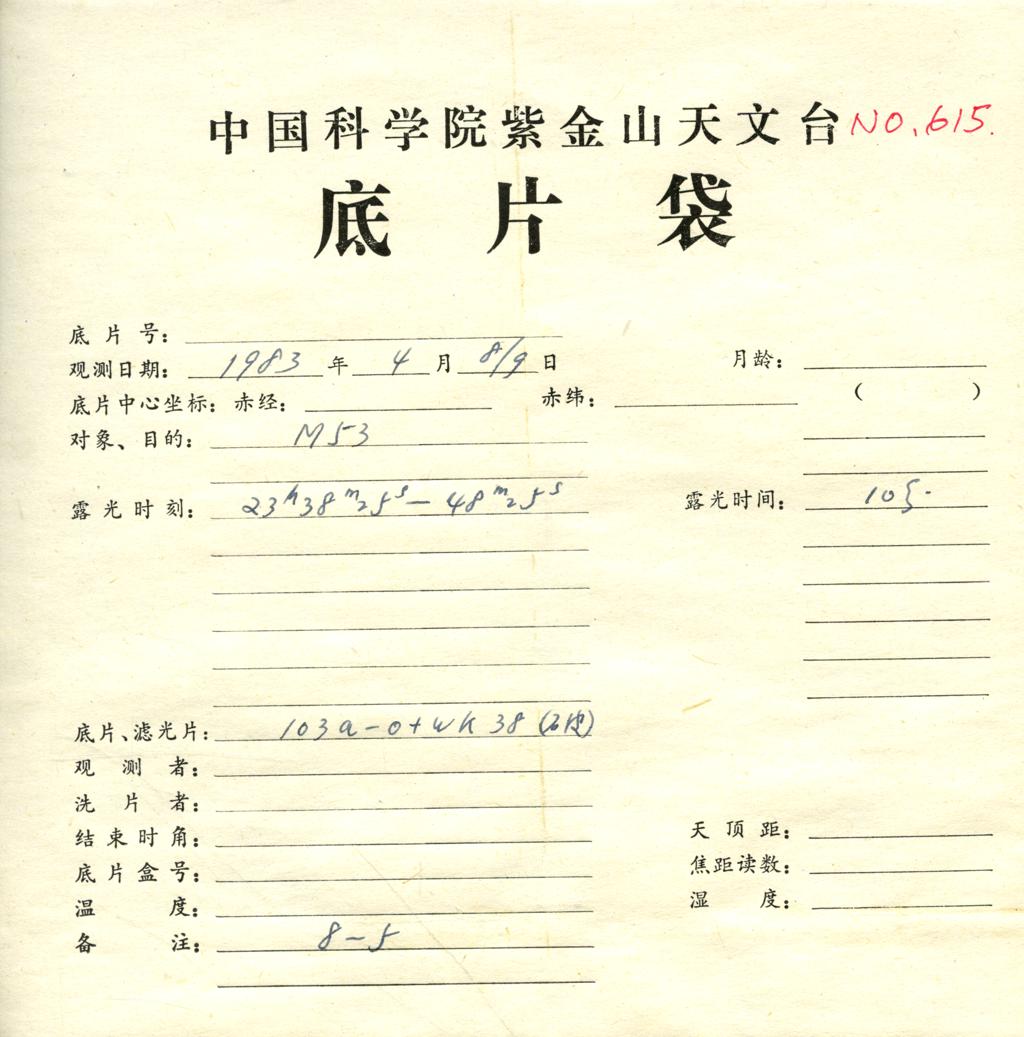 中国科学院紫金山天文台 NO.615.
底片袋
底片号：
观测日期： 1983 年 4 月 8/9 日 月龄：
底片中心坐标：赤经： 赤纬： （ ）
对象、目的： M53
露光时刻： 23h38m25s — 48m25s 露光时间： 10
底片、滤光片： 103a-O+WK38
观测者：
洗片者：
结束时角： 天顶距：
底片盒号： 焦距读数：
温度： 湿度：
备注： 8-5